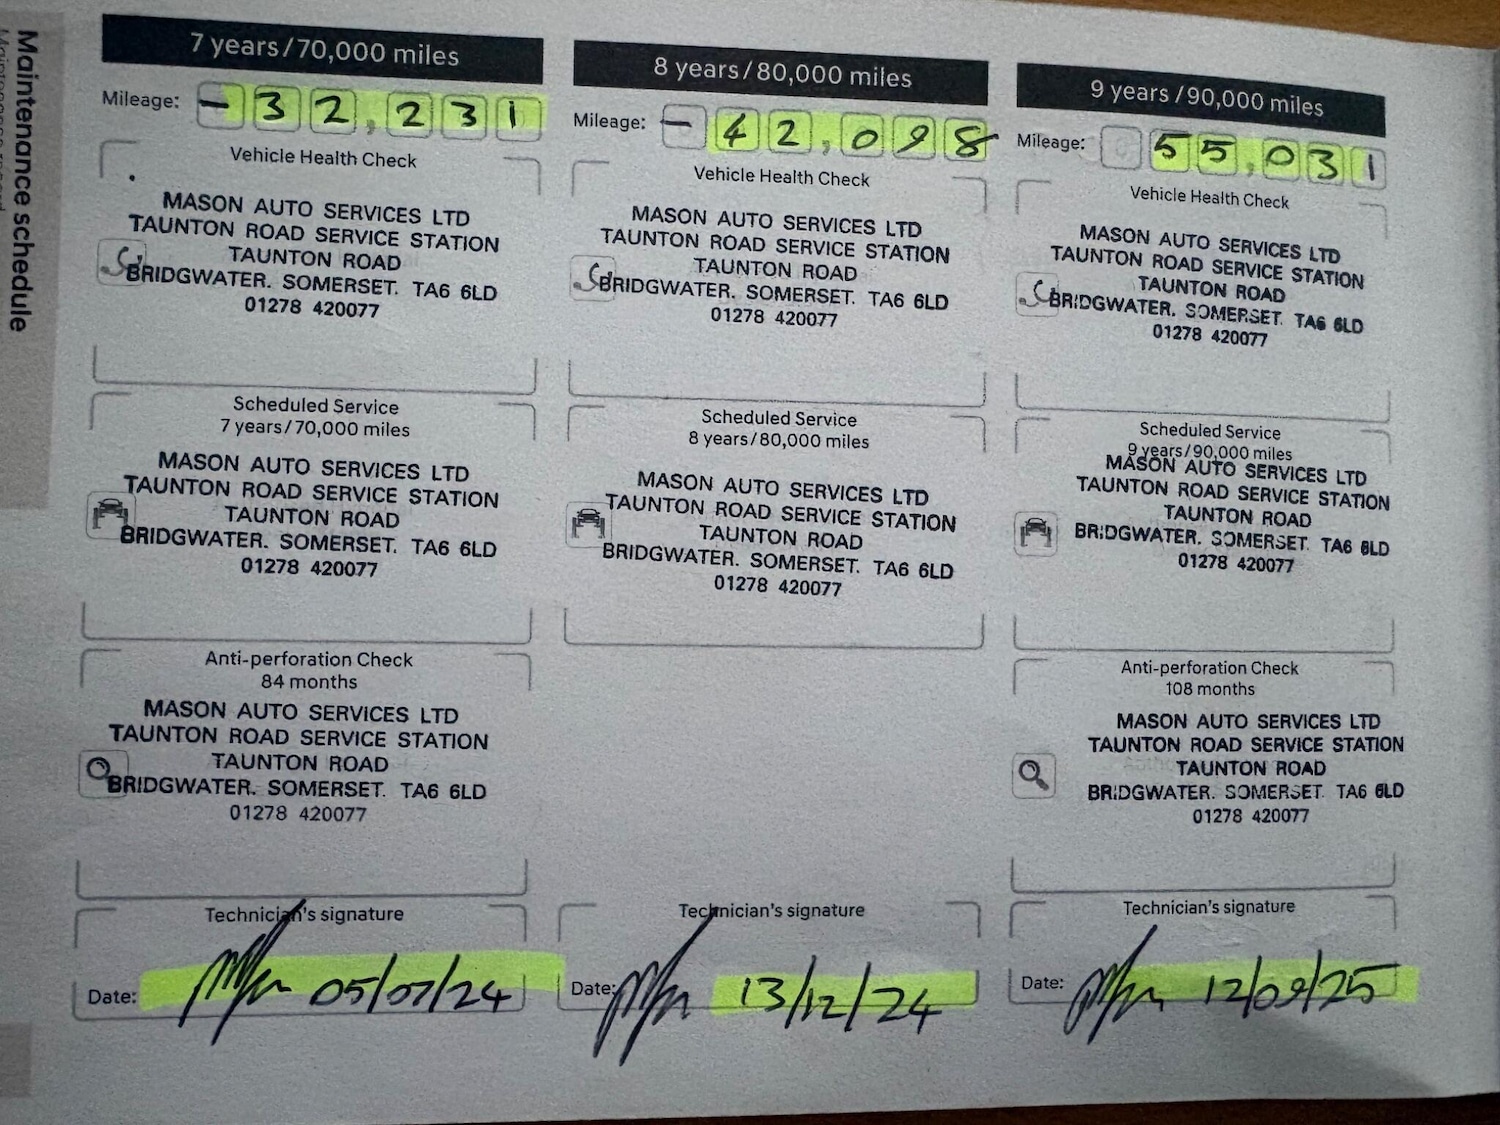 Maintenance schedule
7 years/70,000 miles
Mileage: - 32,231
Vehicle Health Check
MASON AUTO SERVICES LTD
TAUNTON ROAD SERVICE STATION
TAUNTON ROAD
BRIDGWATER. SOMERSET. TA6 6LD
01278 420077
Scheduled Service
7 years/70,000 miles
MASON AUTO SERVICES LTD
TAUNTON ROAD SERVICE STATION
TAUNTON ROAD
BRIDGWATER. SOMERSET. TA6 6LD
01278 420077
Anti-perforation Check
84 months
MASON AUTO SERVICES LTD
TAUNTON ROAD SERVICE STATION
TAUNTON ROAD
BRIDGWATER. SOMERSET. TA6 6LD
01278 420077
Technician's signature
Date: 05/07/24
8 years/80,000 miles
Mileage: - 42,098
Vehicle Health Check
MASON AUTO SERVICES LTD
TAUNTON ROAD SERVICE STATION
TAUNTON ROAD
BRIDGWATER. SOMERSET. TA6 6LD
01278 420077
Scheduled Service
8 years/80,000 miles
MASON AUTO SERVICES LTD
TAUNTON ROAD SERVICE STATION
TAUNTON ROAD
BRIDGWATER. SOMERSET. TA6 6LD
01278 420077
Technician's signature
Date: 13/12/24
9 years/90,000 miles
Mileage: 55,031
Vehicle Health Check
MASON AUTO SERVICES LTD
TAUNTON ROAD SERVICE STATION
TAUNTON ROAD
BRIDGWATER. SOMERSET. TA6 6LD
01278 420077
Scheduled Service
9 years/90,000 miles
MASON AUTO SERVICES LTD
TAUNTON ROAD SERVICE STATION
TAUNTON ROAD
BRIDGWATER. SOMERSET. TA6 6LD
01278 420077
Anti-perforation Check
108 months
MASON AUTO SERVICES LTD
TAUNTON ROAD SERVICE STATION
TAUNTON ROAD
BRIDGWATER. SOMERSET. TA6 6LD
01278 420077
Technician's signature
Date: 12/09/25